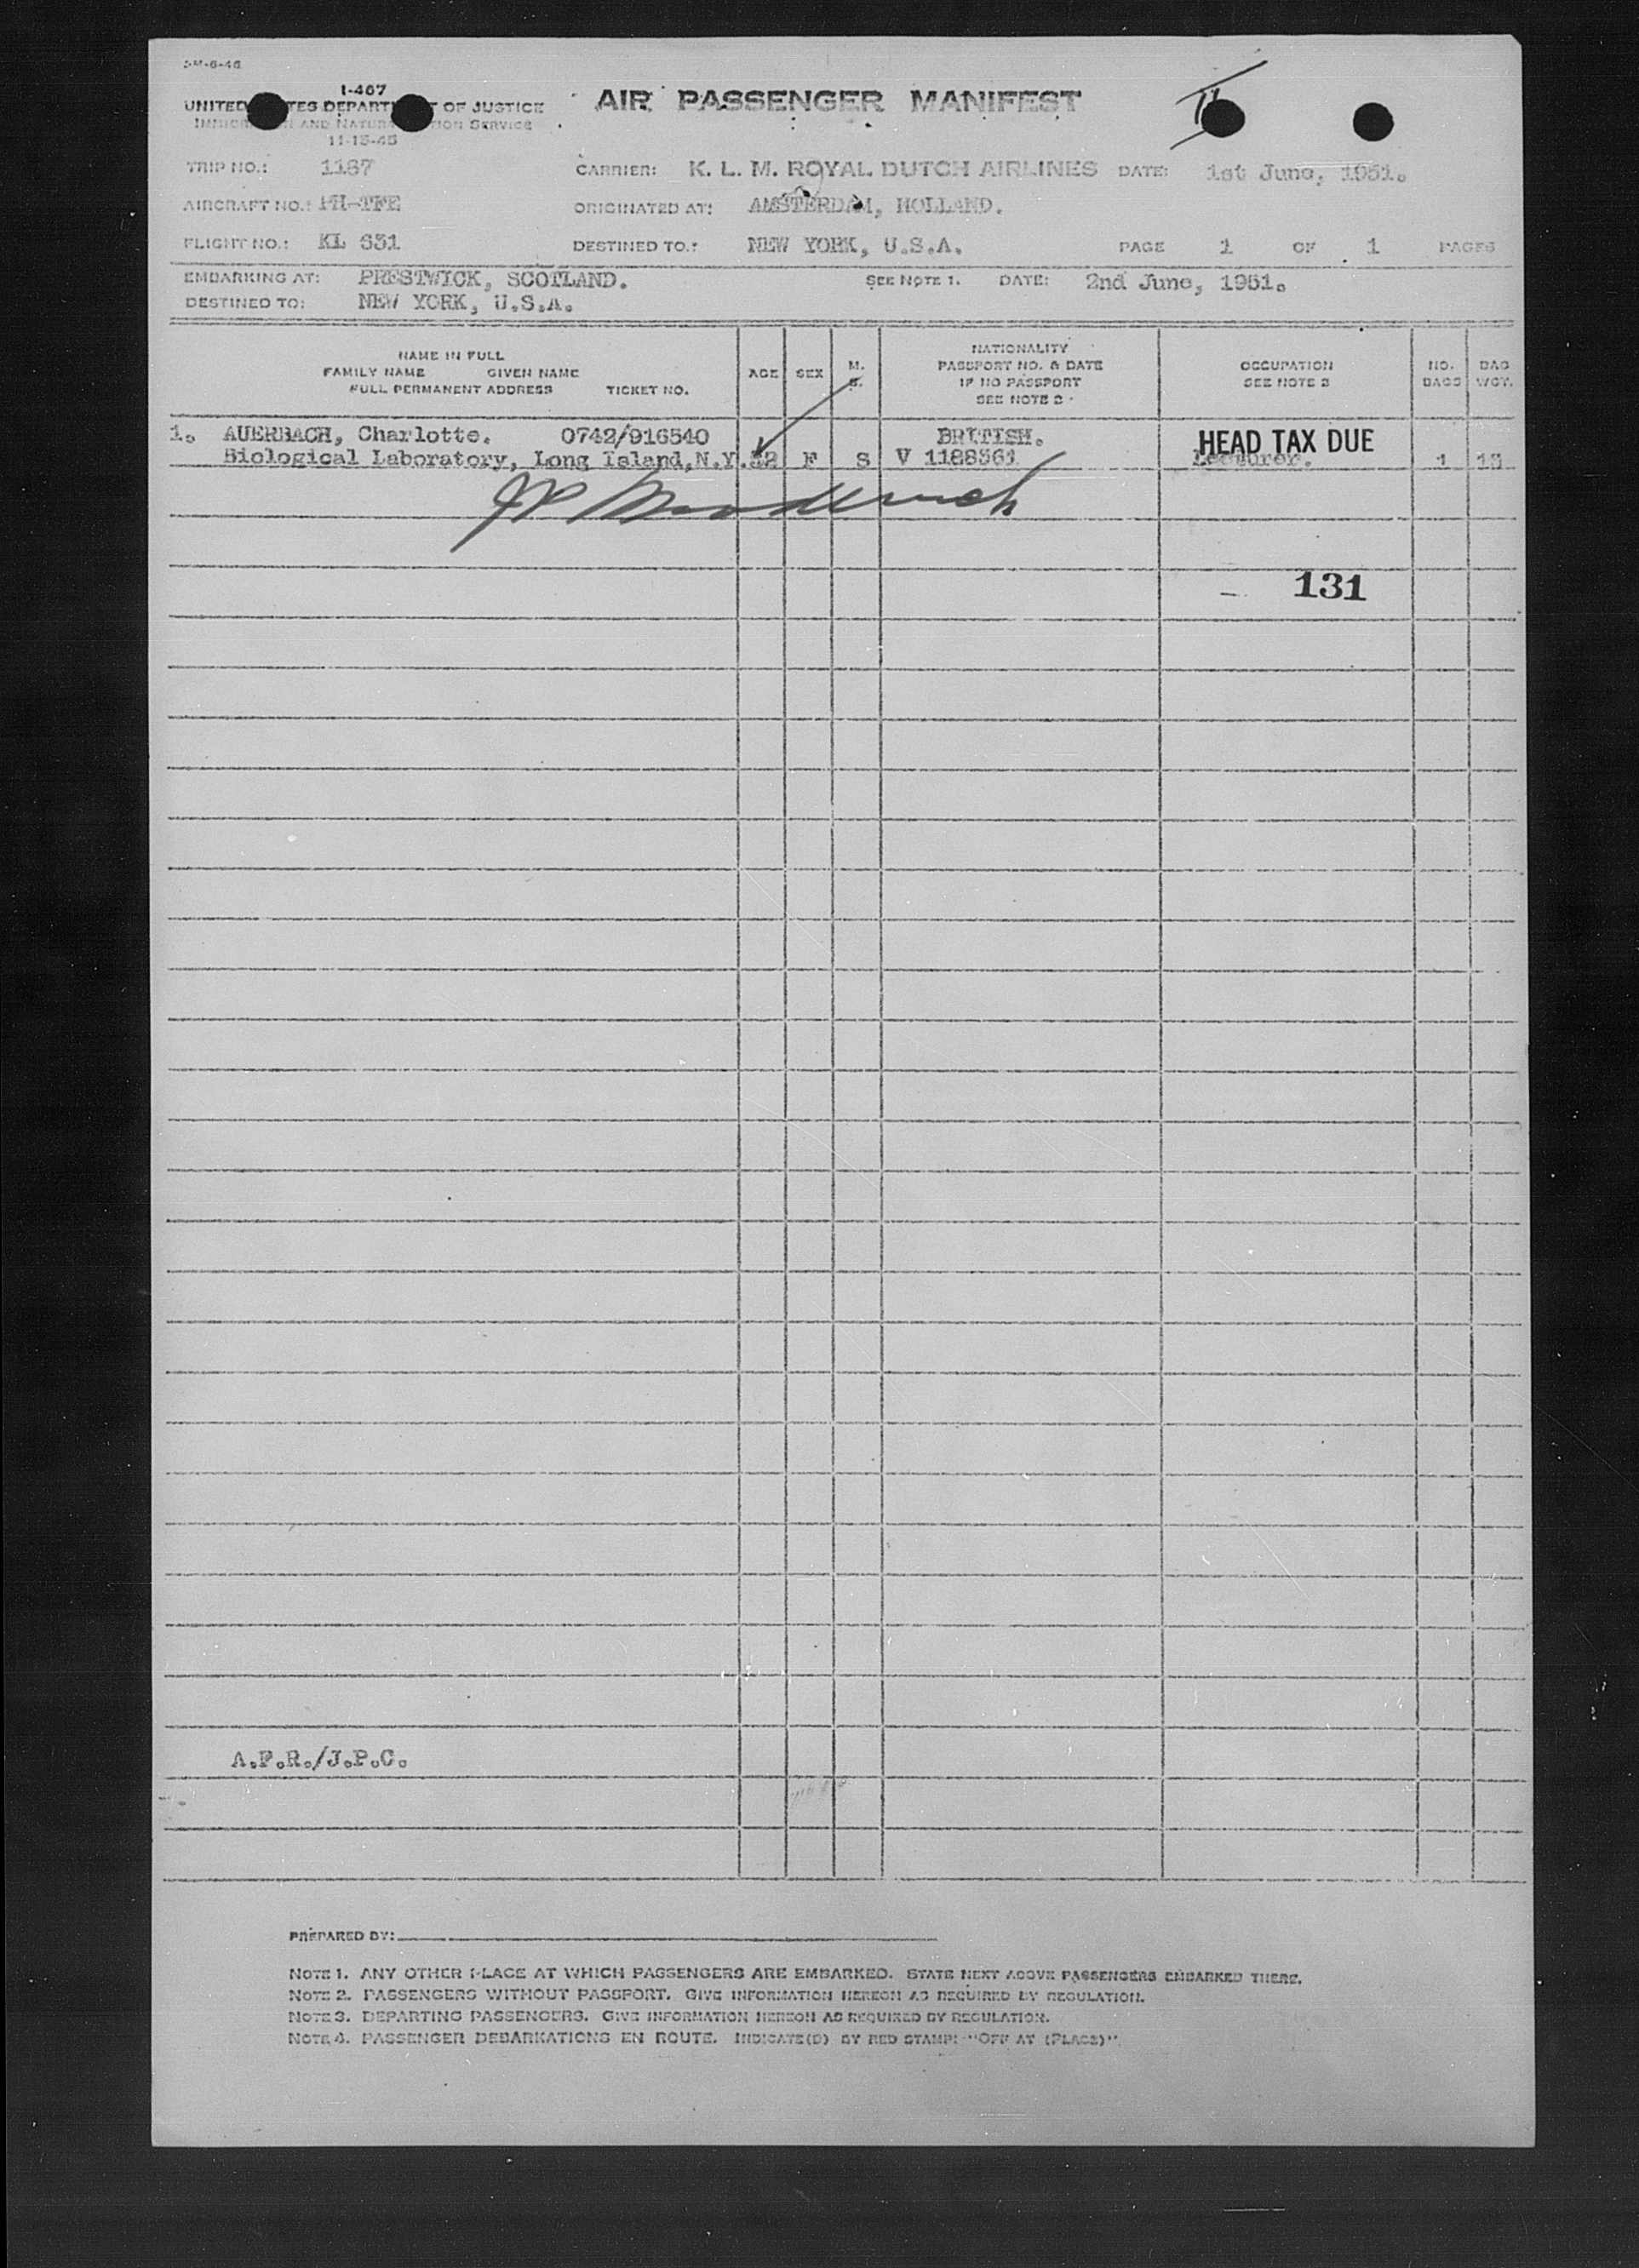 I-467
UNITED STATES DEPARTMENT OF JUSTICE
AIR PASSENGER MANIFEST
IMMIGRATION AND NATURALIZATION SERVICE
11-15-45
TRIP NO.: 1187 CARRIER: K. L. M. ROYAL DUTCH AIRLINES DATE: 1st June, 1951.
AIRCRAFT NO.: PH-TFE ORIGINATED AT: AMSTERDAM, HOLLAND.
FLIGHT NO.: KL 631 DESTINED TO.: NEW YORK, U.S.A. PAGE 1 OF 1 PAGES
EMBARKING AT: PRESTWICK, SCOTLAND. SEE NOTE 1. DATE: 2nd June, 1951.
DESTINED TO: NEW YORK, U.S.A.
NAME IN FULL
FAMILY NAME GIVEN NAME
FULL PERMANENT ADDRESS TICKET NO.
AGE
SEX
M.
S.
NATIONALITY
PASSPORT NO. & DATE
IF NO PASSPORT
SEE NOTE 2
OCCUPATION
SEE NOTE 3
NO.
BAGS
BAG
WGT.
1. AUERBACH, Charlotte. 0742/916540 BRITISH. HEAD TAX DUE
Biological Laboratory, Long Island, N.Y. F S V 1188361 Lecturer. 1
131
A.F.R./J.P.C.
PREPARED BY:
NOTE 1. ANY OTHER PLACE AT WHICH PASSENGERS ARE EMBARKED. STATE NEXT ABOVE PASSENGERS EMBARKED THERE.
NOTE 2. PASSENGERS WITHOUT PASSPORT. GIVE INFORMATION HEREON AS REQUIRED BY REGULATION.
NOTE 3. DEPARTING PASSENGERS. GIVE INFORMATION HEREON AS REQUIRED BY REGULATION.
NOTE 4. PASSENGER DEBARKATIONS EN ROUTE. INDICATE(D) BY RED STAMP: "OFF AT (PLACE)".